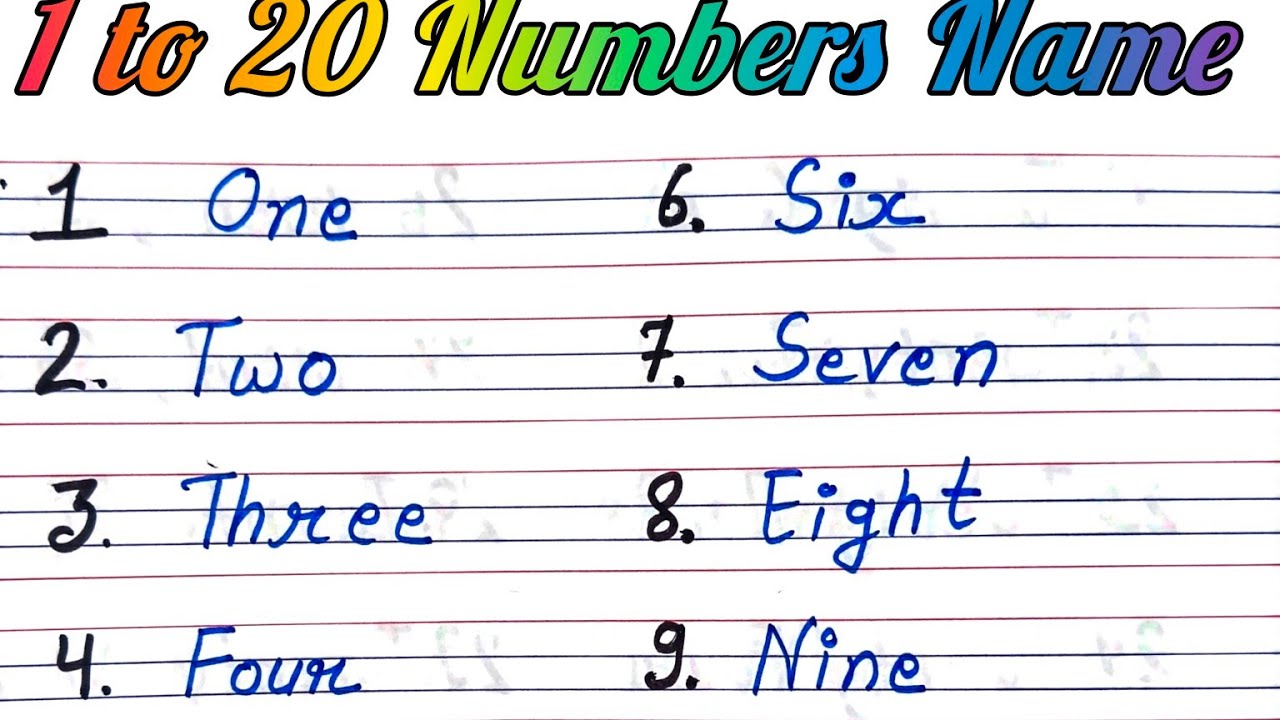 1 to 20 Numbers Name
1 One 6. Six
2. Two 7. Seven
3. Three 8. Eight
4. Four 9. Nine